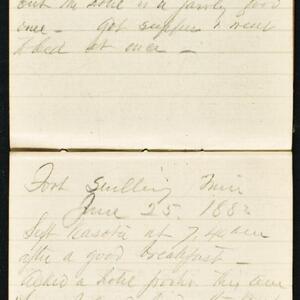 but the hotel is a fairly good
one - Got supper & went
to bed at once -
Fort Snelling Minn
June 25. 188
Left Kasota at 7,40 am
after a good breakfast -
Asked a hotel porter this time